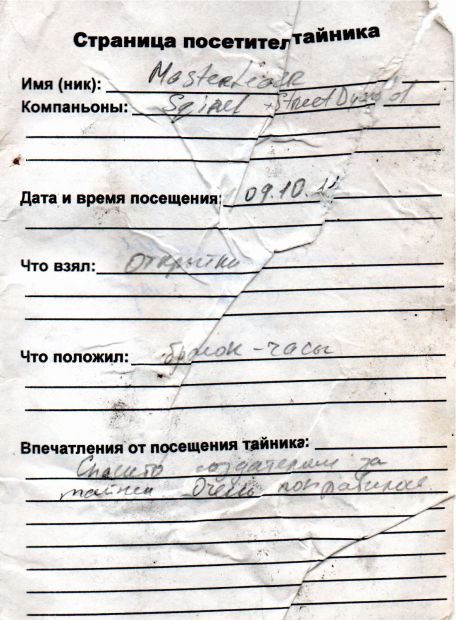 Страница посетителя тайника
Имя (ник):
Компаньоны:
Дата и время посещения: 09.10.11
Что взял: Открытки
Что положил: брелок-часы
Впечатления от посещения тайника:
Спасибо создателям за
тайник Очень понравилось